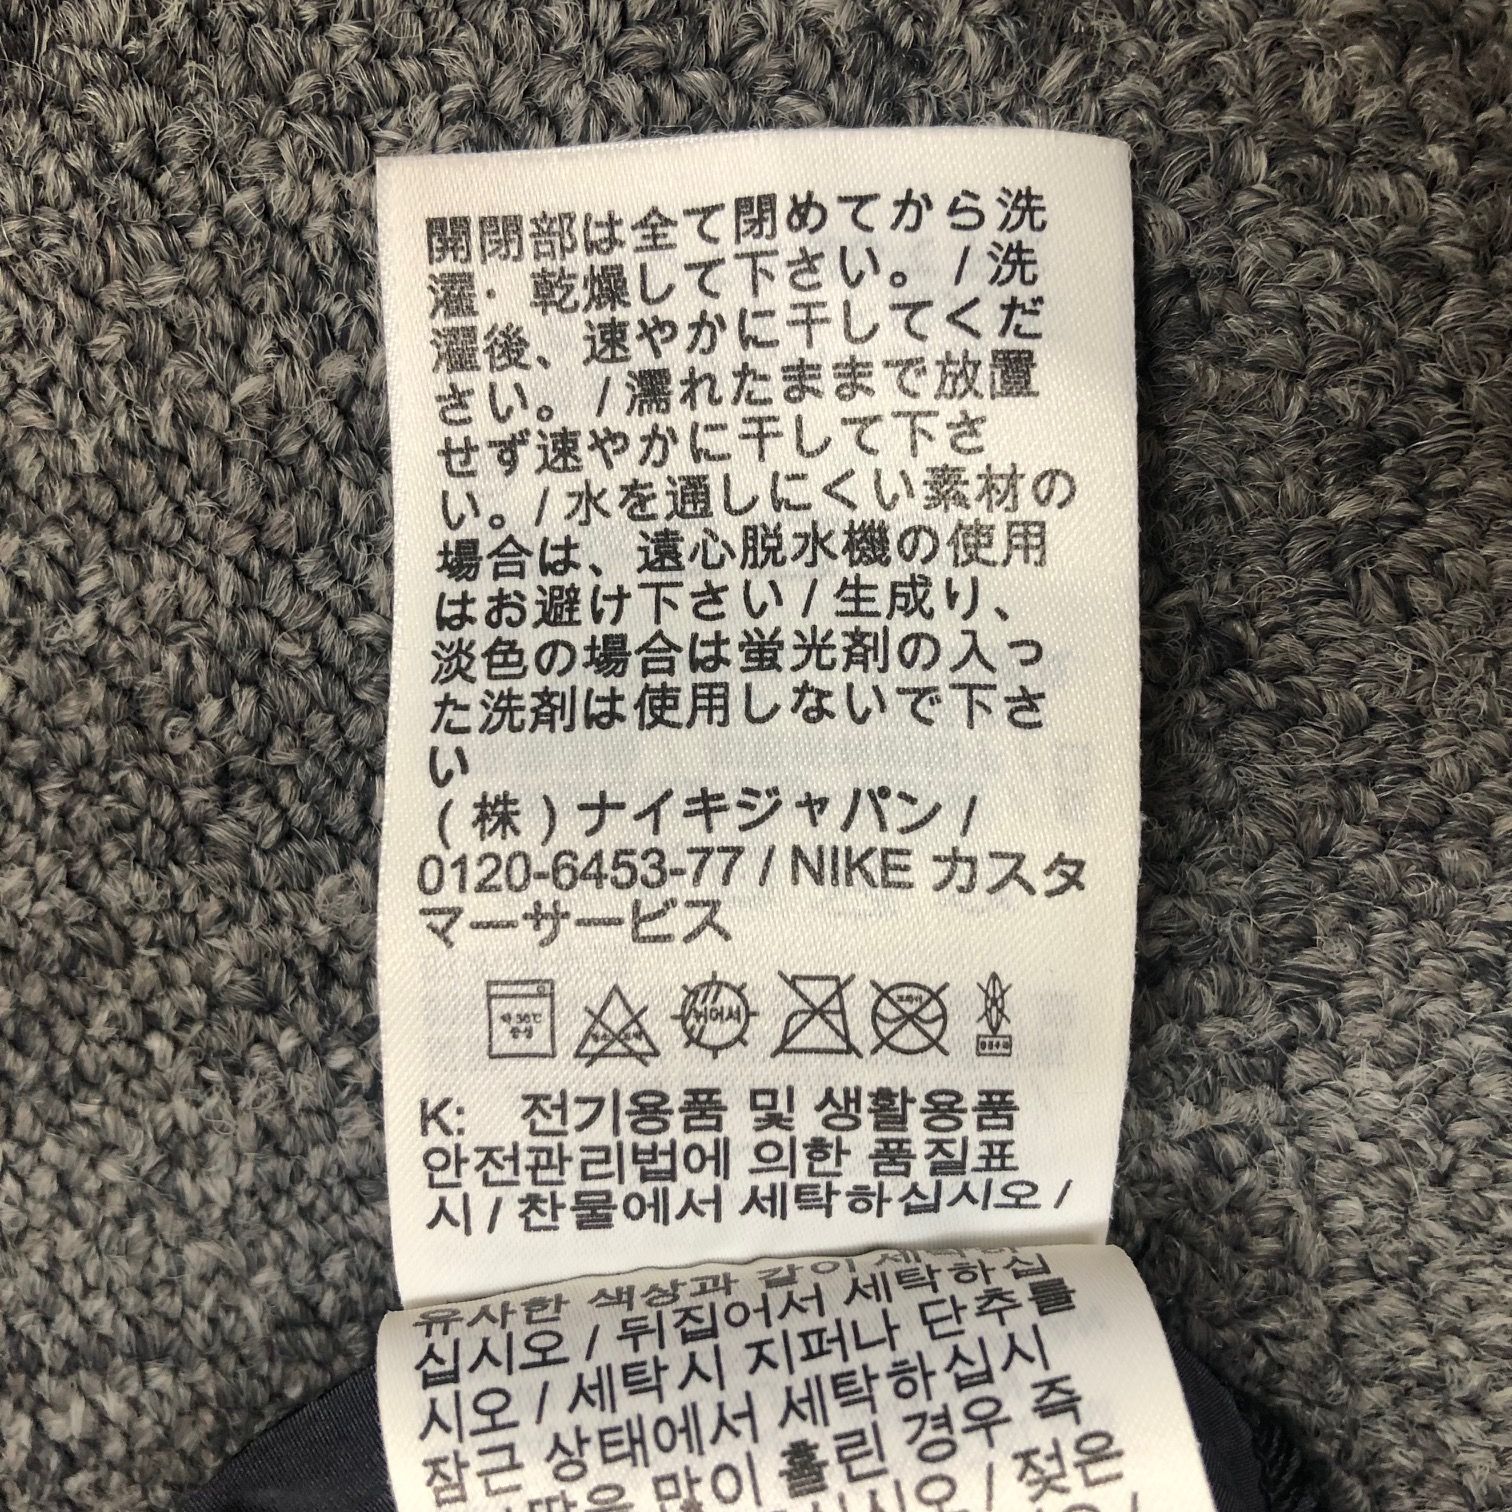 開閉部は全て閉めてから洗
濯・乾燥して下さい。/洗
濯後、速やかに干してくだ
さい。/濡れたままで放置
せず速やかに干して下さ
い。/水を通しにくい素材の
場合は、遠心脱水機の使用
はお避け下さい/生成り、
淡色の場合は蛍光剤の入っ
た洗剤は使用しないで下さ
い
(株)ナイキジャパン/
0120-6453-77/NIKE カスタ
マーサービス
약30℃
중성
뉘어서
드라이
K: 전기용품 및 생활용품
안전관리법에 의한 품질표
시/찬물에서 세탁하십시오/
유사한 색상과 같이 세탁하
십시오/뒤집어서 세탁하십
시오/세탁시 지퍼나 단추를
잠근 상태에서 세탁하십시
많이 흘린 경우 즉
젖은